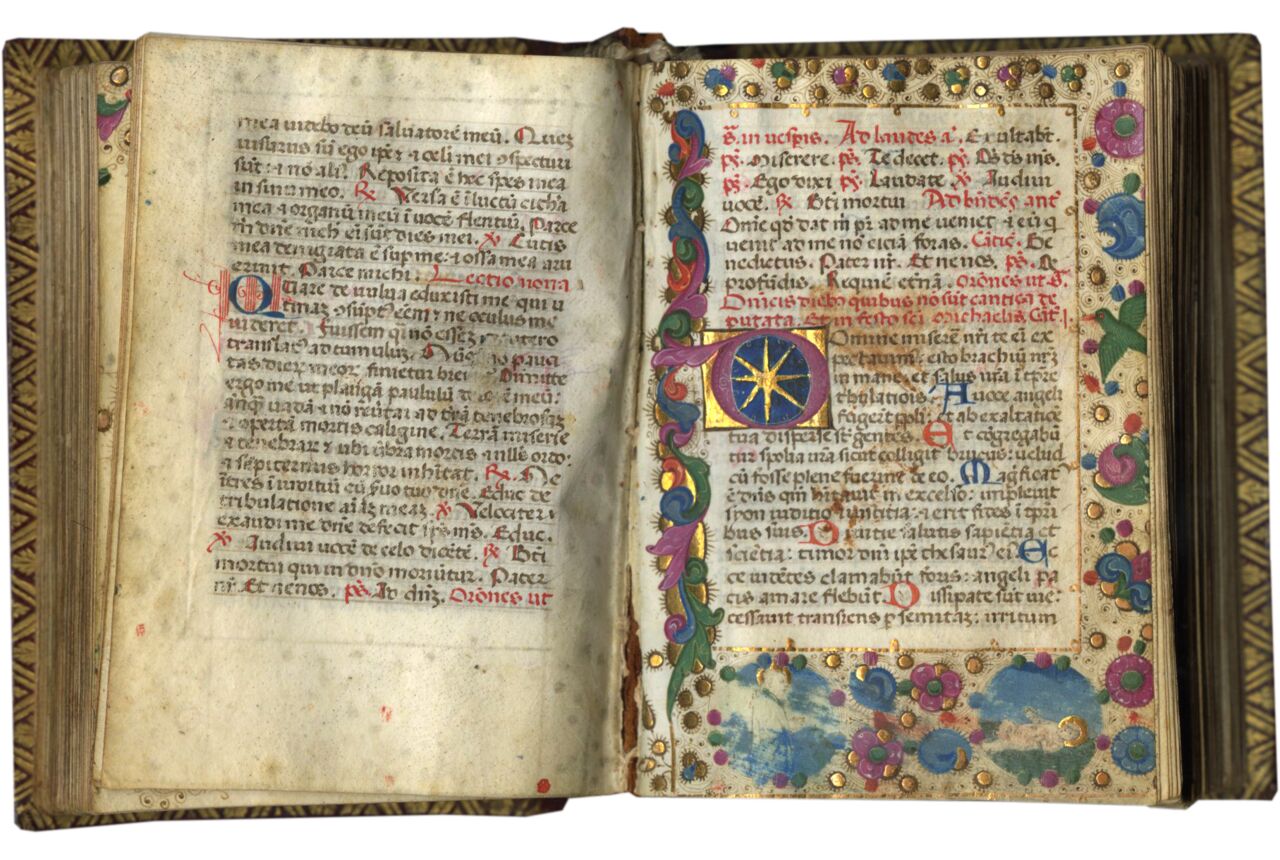 mea videbo deū salvatorē meū. Quez
visurus sū ego ip̄e ⁊ oculi mei ꝯspecturi
sūt: ⁊ nō ali⁹. Reposita ē hec spes mea
in sinu meo. ℟ Versa ē ī luctū cithara
mea ⁊ organū meū ī vocē flentiū. Parce
m̄ dn̄e nich̄ eī sūt dies mei. ℣ Cutis
mea denigrata ē sup me: ⁊ ossa mea aru
erunt. Parce michi. Lectio nona
Quare de vulva eduxisti me qui u
tinaz ꝯsūpt⁹ eem̄ ne oculus me
videret. Fuissem q̄i nō essez utero
translat⁹ ad tumuluz. pauci
tas dierū meorū finietur brevi Dimitte
ergo me ut plangā paululū d meū:
anq̄ vadā ⁊ nō revtar ad trā̄ tenebrosaz
⁊ opertā mortis caligine. Terrā miserie
⁊ tenebrarū ⁊ ubi ūbra mortis ⁊ nulls ordo:
⁊ sēpiternus horror inhītat. ℟. Ne
tribulatione aīaz meaz. ℣ Velociter
exaudi me dn̄e defecit sp̄s m̄s. Educ.
℣ Audivi vocē de celo dicētē. ℟ Bt̄i
mortui qui in dn̄o moriūtur. Pater
nr̄. Et ne nos. p̄s. Ad dn̄z. Orōnes ut
s̄. in vesp̄is. Ad laudes a̅. Exultabt̄.
p̄s. Miserere. p̄s. Te decet. p̄s. Ds ds m̄s.
p̄s. Ego dixi p̄s. Laudate. ℣ Audivi
vocē. ℟ Bt̄i mortui Ad bn̄dc̄s ant̄
Omē qd̄ dat m̄ pr̄ ad me veniet ⁊ eū q̄
venit ad me nō eiciā foras. Cātic̄. Be
nedictus. Pater nr̄. Et ne nos. p̄s. De
profūdis. Requiē et̄nā. Orōnes ut s̄.
Dn̄icis dieb⁹ quibus nō sūt cantica de
putata. Et in festo sc̄i Michaelis. Cāt̄.
Domine miserē nr̄i te ei ex
pectavim⁹: esto brachiū nr̄z
in mane. et salus nr̄a ī tp̄re
tribulatiōis. A voce angeli
fugerūt ppl̄i: et ab exaltatiōe
tua disperse sūt gentes. Et cōgregabū
tur spolia vrā̄ sicut colligit brucus: velud
cū fosse plene fuerint de eo. Magficat⁹
ē dn̄s qm̄ hītavit in excelso: implevit
syon iuditio ⁊ iustitia: ⁊ erit fides ī tp̄ri
bus tuis. Divitie salutis sapiētia et
sciētia: timor dn̄i ip̄e thesaur⁹ ei⁹. Ec
ce vidētes clamabūt foris: angeli pa
cis amare flebūt. Dissipate sūt vie:
cessavit transiens p semitaz: irritum